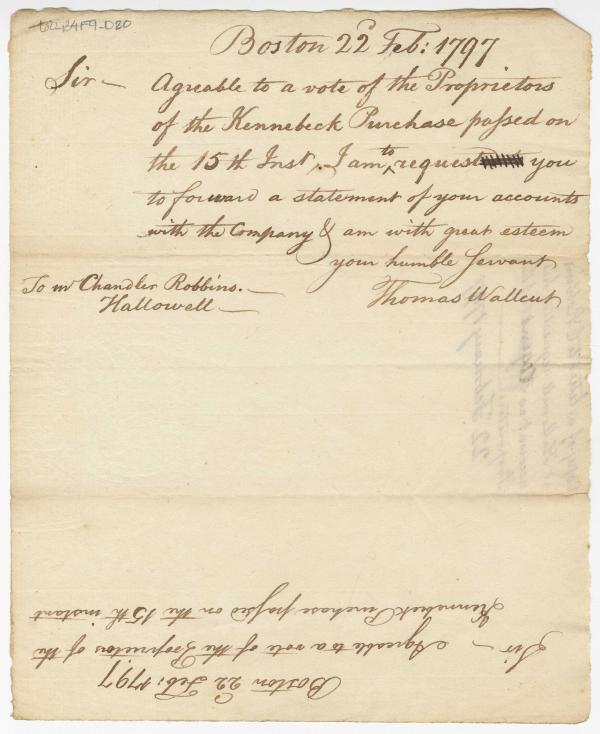 62LB4F9-D20
Boston 22d Feb: 1797
Sir — Agreable to a vote of the Proprietors
of the Kennebeck Purchase passed on
the 15th Inst. I am to request you
to forward a statement of your accounts
with the Company & am with great esteem
your humble Servant
To Mr Chandler Robbins. —
Hallowell —
Thomas Wallcut
Boston 22 Feb: 1797
Sir — Agreable to a vote of the Proprietors of the
Kennebek Purchase passed on the 15th instant